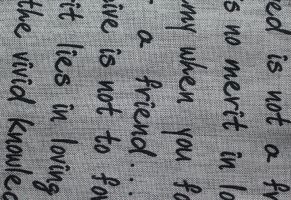 ed is not a fr
s no merit in lo
my when you fo
a friend....
ive is not to fo
it lies in loving
the vivid knowled